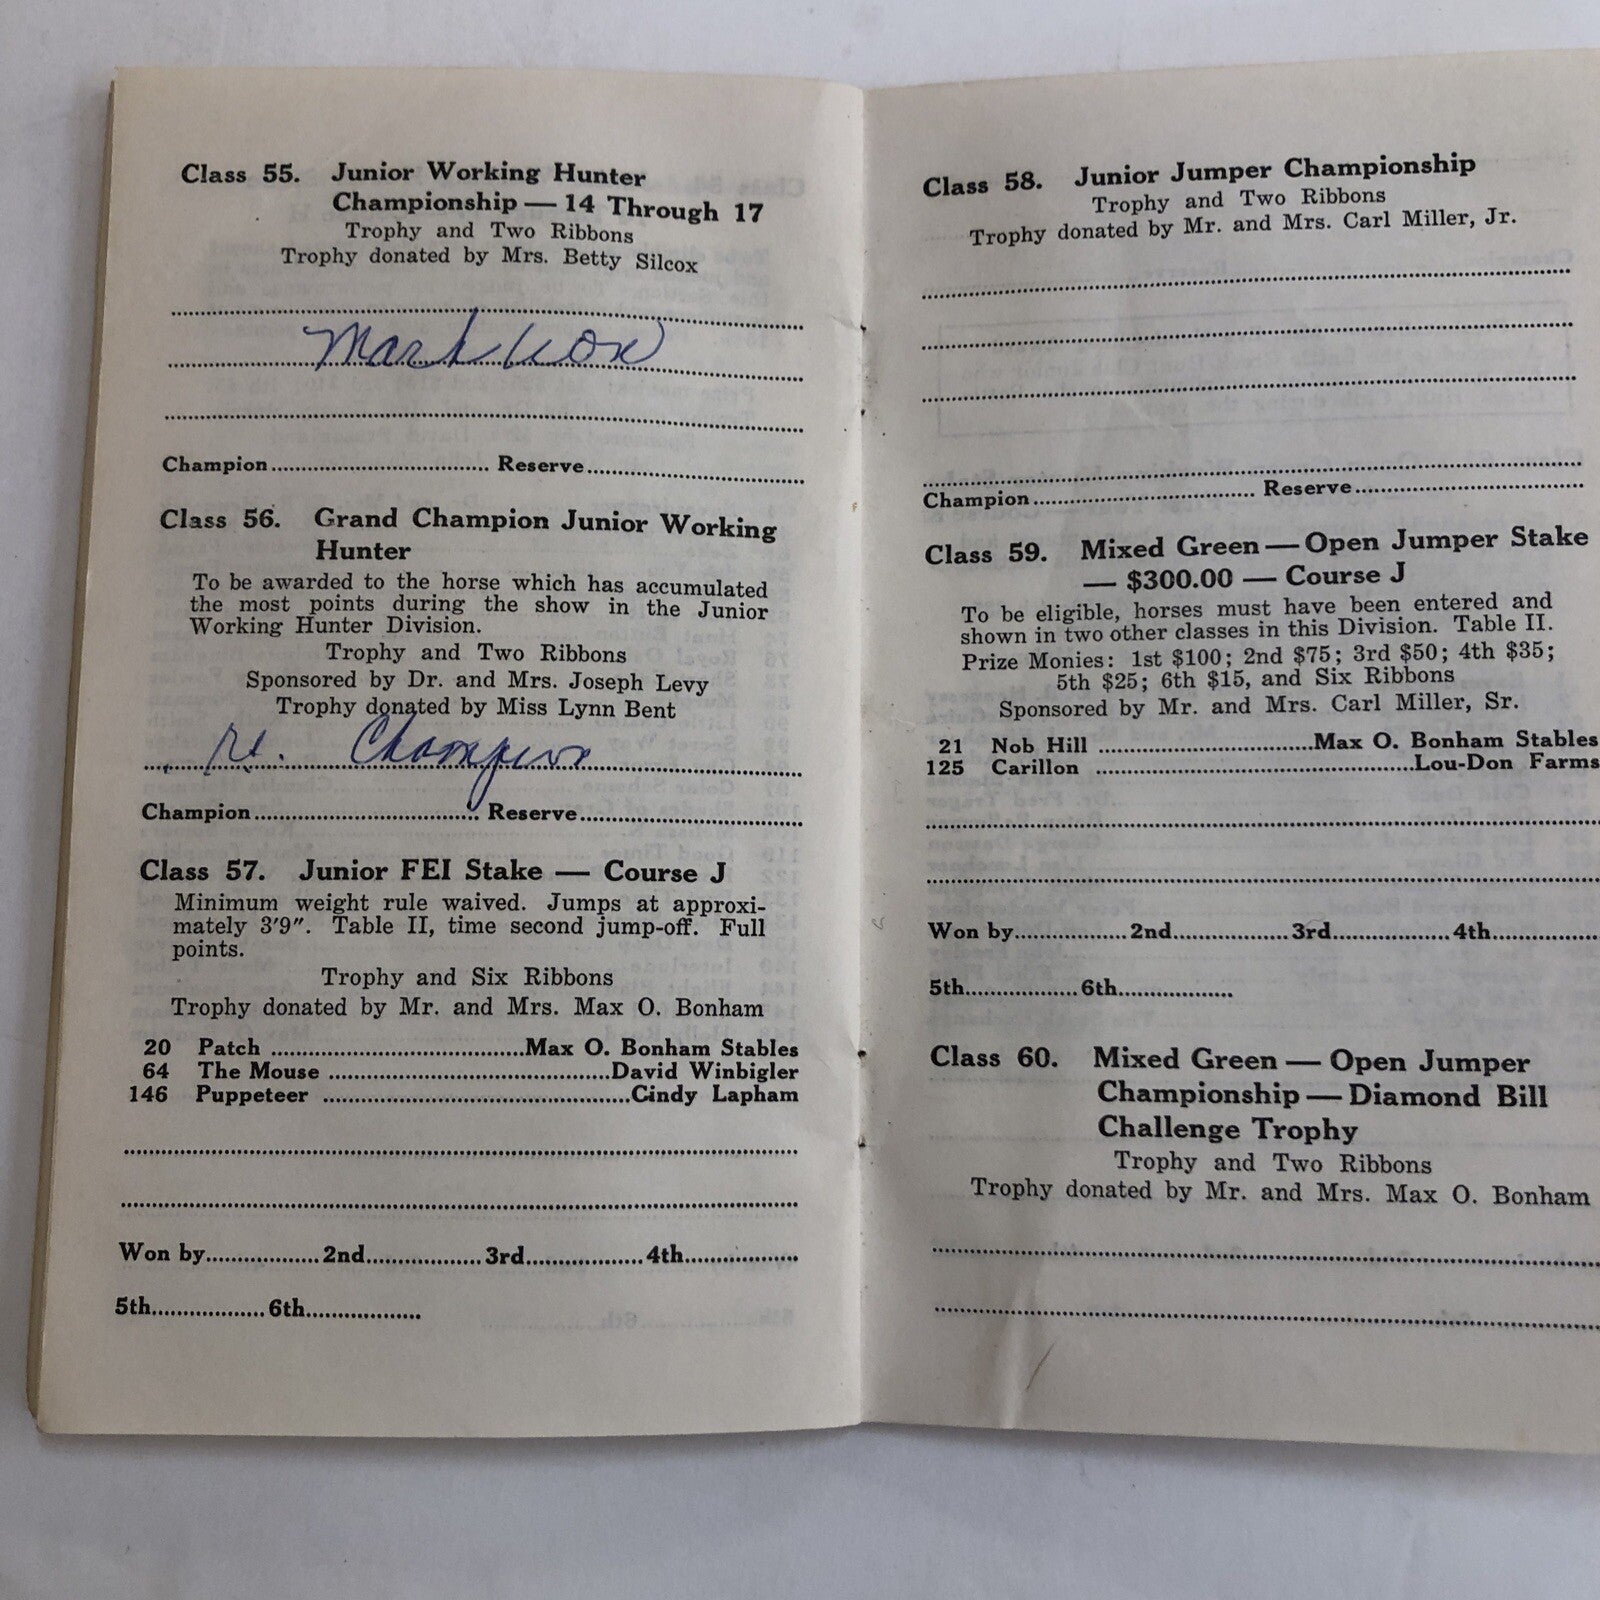 Class 55. Junior Working Hunter
Championship — 14 Through 17
Trophy and Two Ribbons
Trophy donated by Mrs. Betty Silcox
Mark
Champion.................................. Reserve..................................
Class 56. Grand Champion Junior Working
Hunter
To be awarded to the horse which has accumulated
the most points during the show in the Junior
Working Hunter Division.
Trophy and Two Ribbons
Sponsored by Dr. and Mrs. Joseph Levy
Trophy donated by Miss Lynn Bent
Champion
Champion.................................. Reserve..................................
Class 57. Junior FEI Stake — Course J
Minimum weight rule waived. Jumps at approxi-
mately 3'9". Table II, time second jump-off. Full
points.
Trophy and Six Ribbons
Trophy donated by Mr. and Mrs. Max O. Bonham
20 Patch ......................................Max O. Bonham Stables
64 The Mouse ..........................................David Winbigler
146 Puppeteer ..............................................Cindy Lapham
Won by.................2nd.................3rd.................4th.................
5th.................6th.................
Class 58. Junior Jumper Championship
Trophy and Two Ribbons
Trophy donated by Mr. and Mrs. Carl Miller, Jr.
Champion.................................. Reserve..................................
Class 59. Mixed Green — Open Jumper Stake
— $300.00 — Course J
To be eligible, horses must have been entered and
shown in two other classes in this Division. Table II.
Prize Monies: 1st $100; 2nd $75; 3rd $50; 4th $35;
5th $25; 6th $15, and Six Ribbons
Sponsored by Mr. and Mrs. Carl Miller, Sr.
21 Nob Hill ................................Max O. Bonham Stables
125 Carillon ................................................Lou-Don Farms
Won by.................2nd.................3rd.................4th.................
5th.................6th.................
Class 60. Mixed Green — Open Jumper
Championship — Diamond Bill
Challenge Trophy
Trophy and Two Ribbons
Trophy donated by Mr. and Mrs. Max O. Bonham